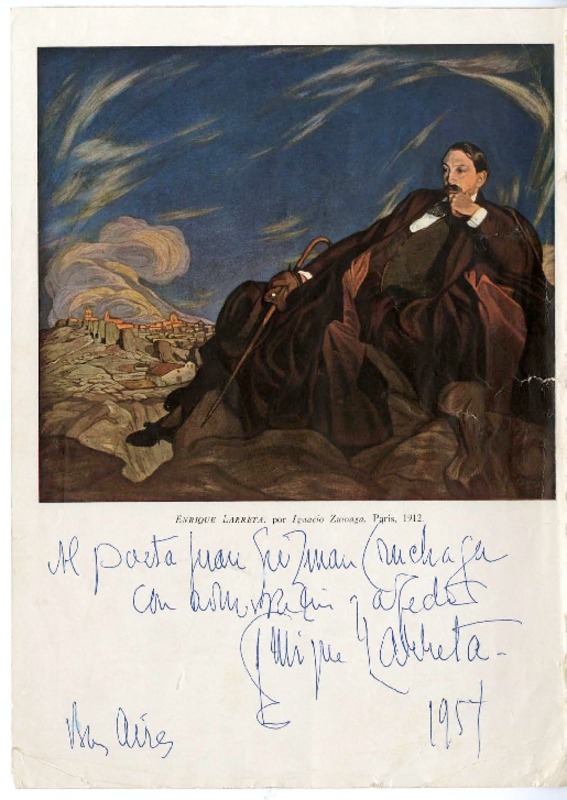 ENRIQUE LARRETA, por Ignacio Zuloaga, París, 1912
Al poeta Juan Guzman Cruchaga
con admiración y afecto
Enrique Larreta -
1957
Bs Aires